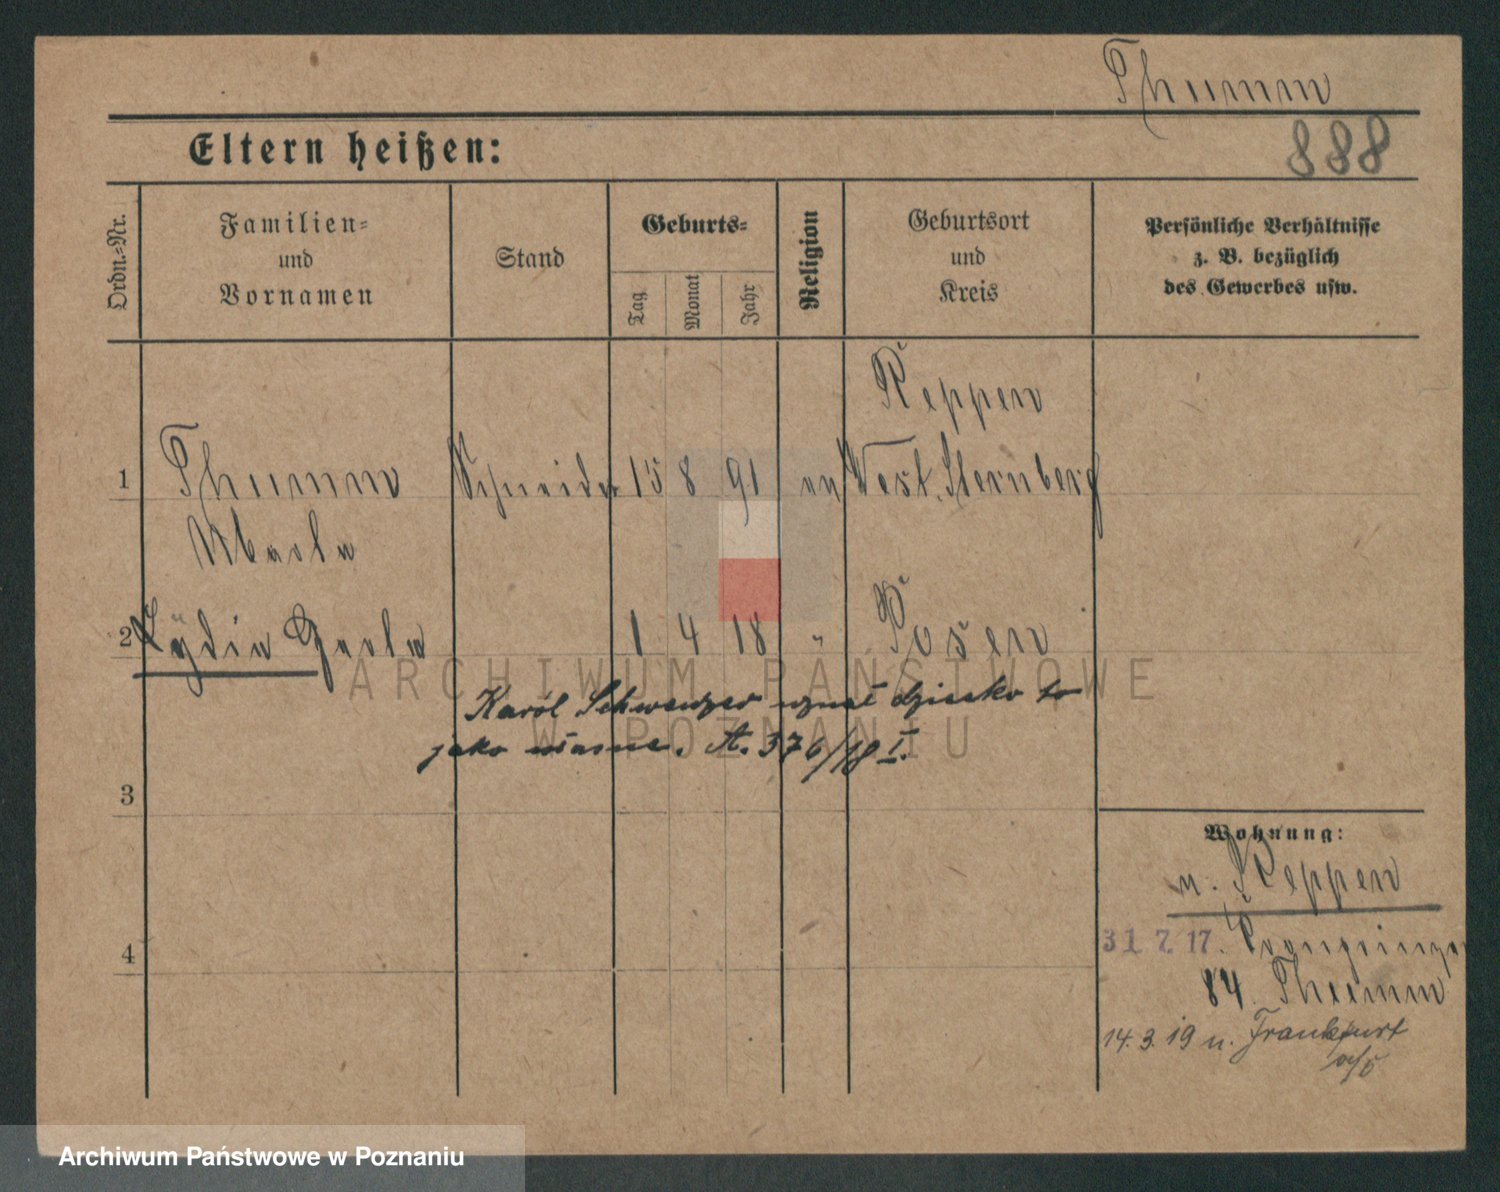 Thumm
888
Eltern heißen:
Ordn.-Nr.
Familien-
und
Vornamen
Stand
Geburts-
Tag
Monat
Jahr
Religion
Geburtsort
und
Kreis
Persönliche Verhältnisse
z. B. bezüglich
des Gewerbes usw.
Reppen
1 Thumm Schneider 15 8 91 ev West. Sternberg
2 Lydia 1 4 18 " Posen
Karol Schwenzer uznał dziecko to
jako własne. A. 376/18 I.
3
4
Wohnung:
n. Reppen
31. 7. 17.
84. Thumm
14. 3. 19 n. Frankfurt
a/O
ARCHIWUM PAŃSTWOWE
W POZNANIU
Archiwum Państwowe w Poznaniu